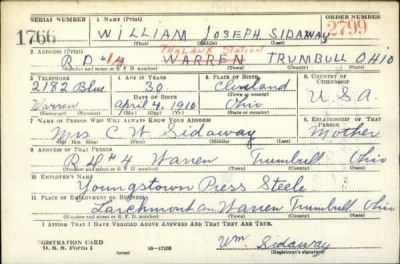 SERIAL NUMBER 1. NAME (Print) ORDER NUMBER
1766 WILLIAM JOSEPH SIDAWAY 2799
(First) (Middle) (Last)
2. ADDRESS (Print) STATION
RD #4 WARREN TRUMBULL OHIO
(Number and street or R. F. D. number) (Town) (County) (State)
3. TELEPHONE 4. AGE IN YEARS 5. PLACE OF BIRTH 6. COUNTRY OF CITIZENSHIP
2182 Blue 30 Cleveland
DATE OF BIRTH
Warren April 4, 1910 Ohio U.S.A.
7. NAME OF PERSON WHO WILL ALWAYS KNOW YOUR ADDRESS 8. RELATIONSHIP OF THAT PERSON
Mrs C W Sidaway Mother
9. ADDRESS OF THAT PERSON
RD #4 Warren Trumbull Ohio
(Number and street or R. F. D. number) (Town) (County) (State)
10. EMPLOYER'S NAME
Youngstown Press Steele
11. PLACE OF EMPLOYMENT OR BUSINESS
Larchmont Warren Trumbull Ohio
(Number and street or R. F. D. number) (Town) (County) (State)
I AFFIRM THAT I HAVE VERIFIED ABOVE ANSWERS AND THAT THEY ARE TRUE.
REGISTRATION CARD
D. S. S. Form 1 Wm Sidaway
(Registrant's signature)